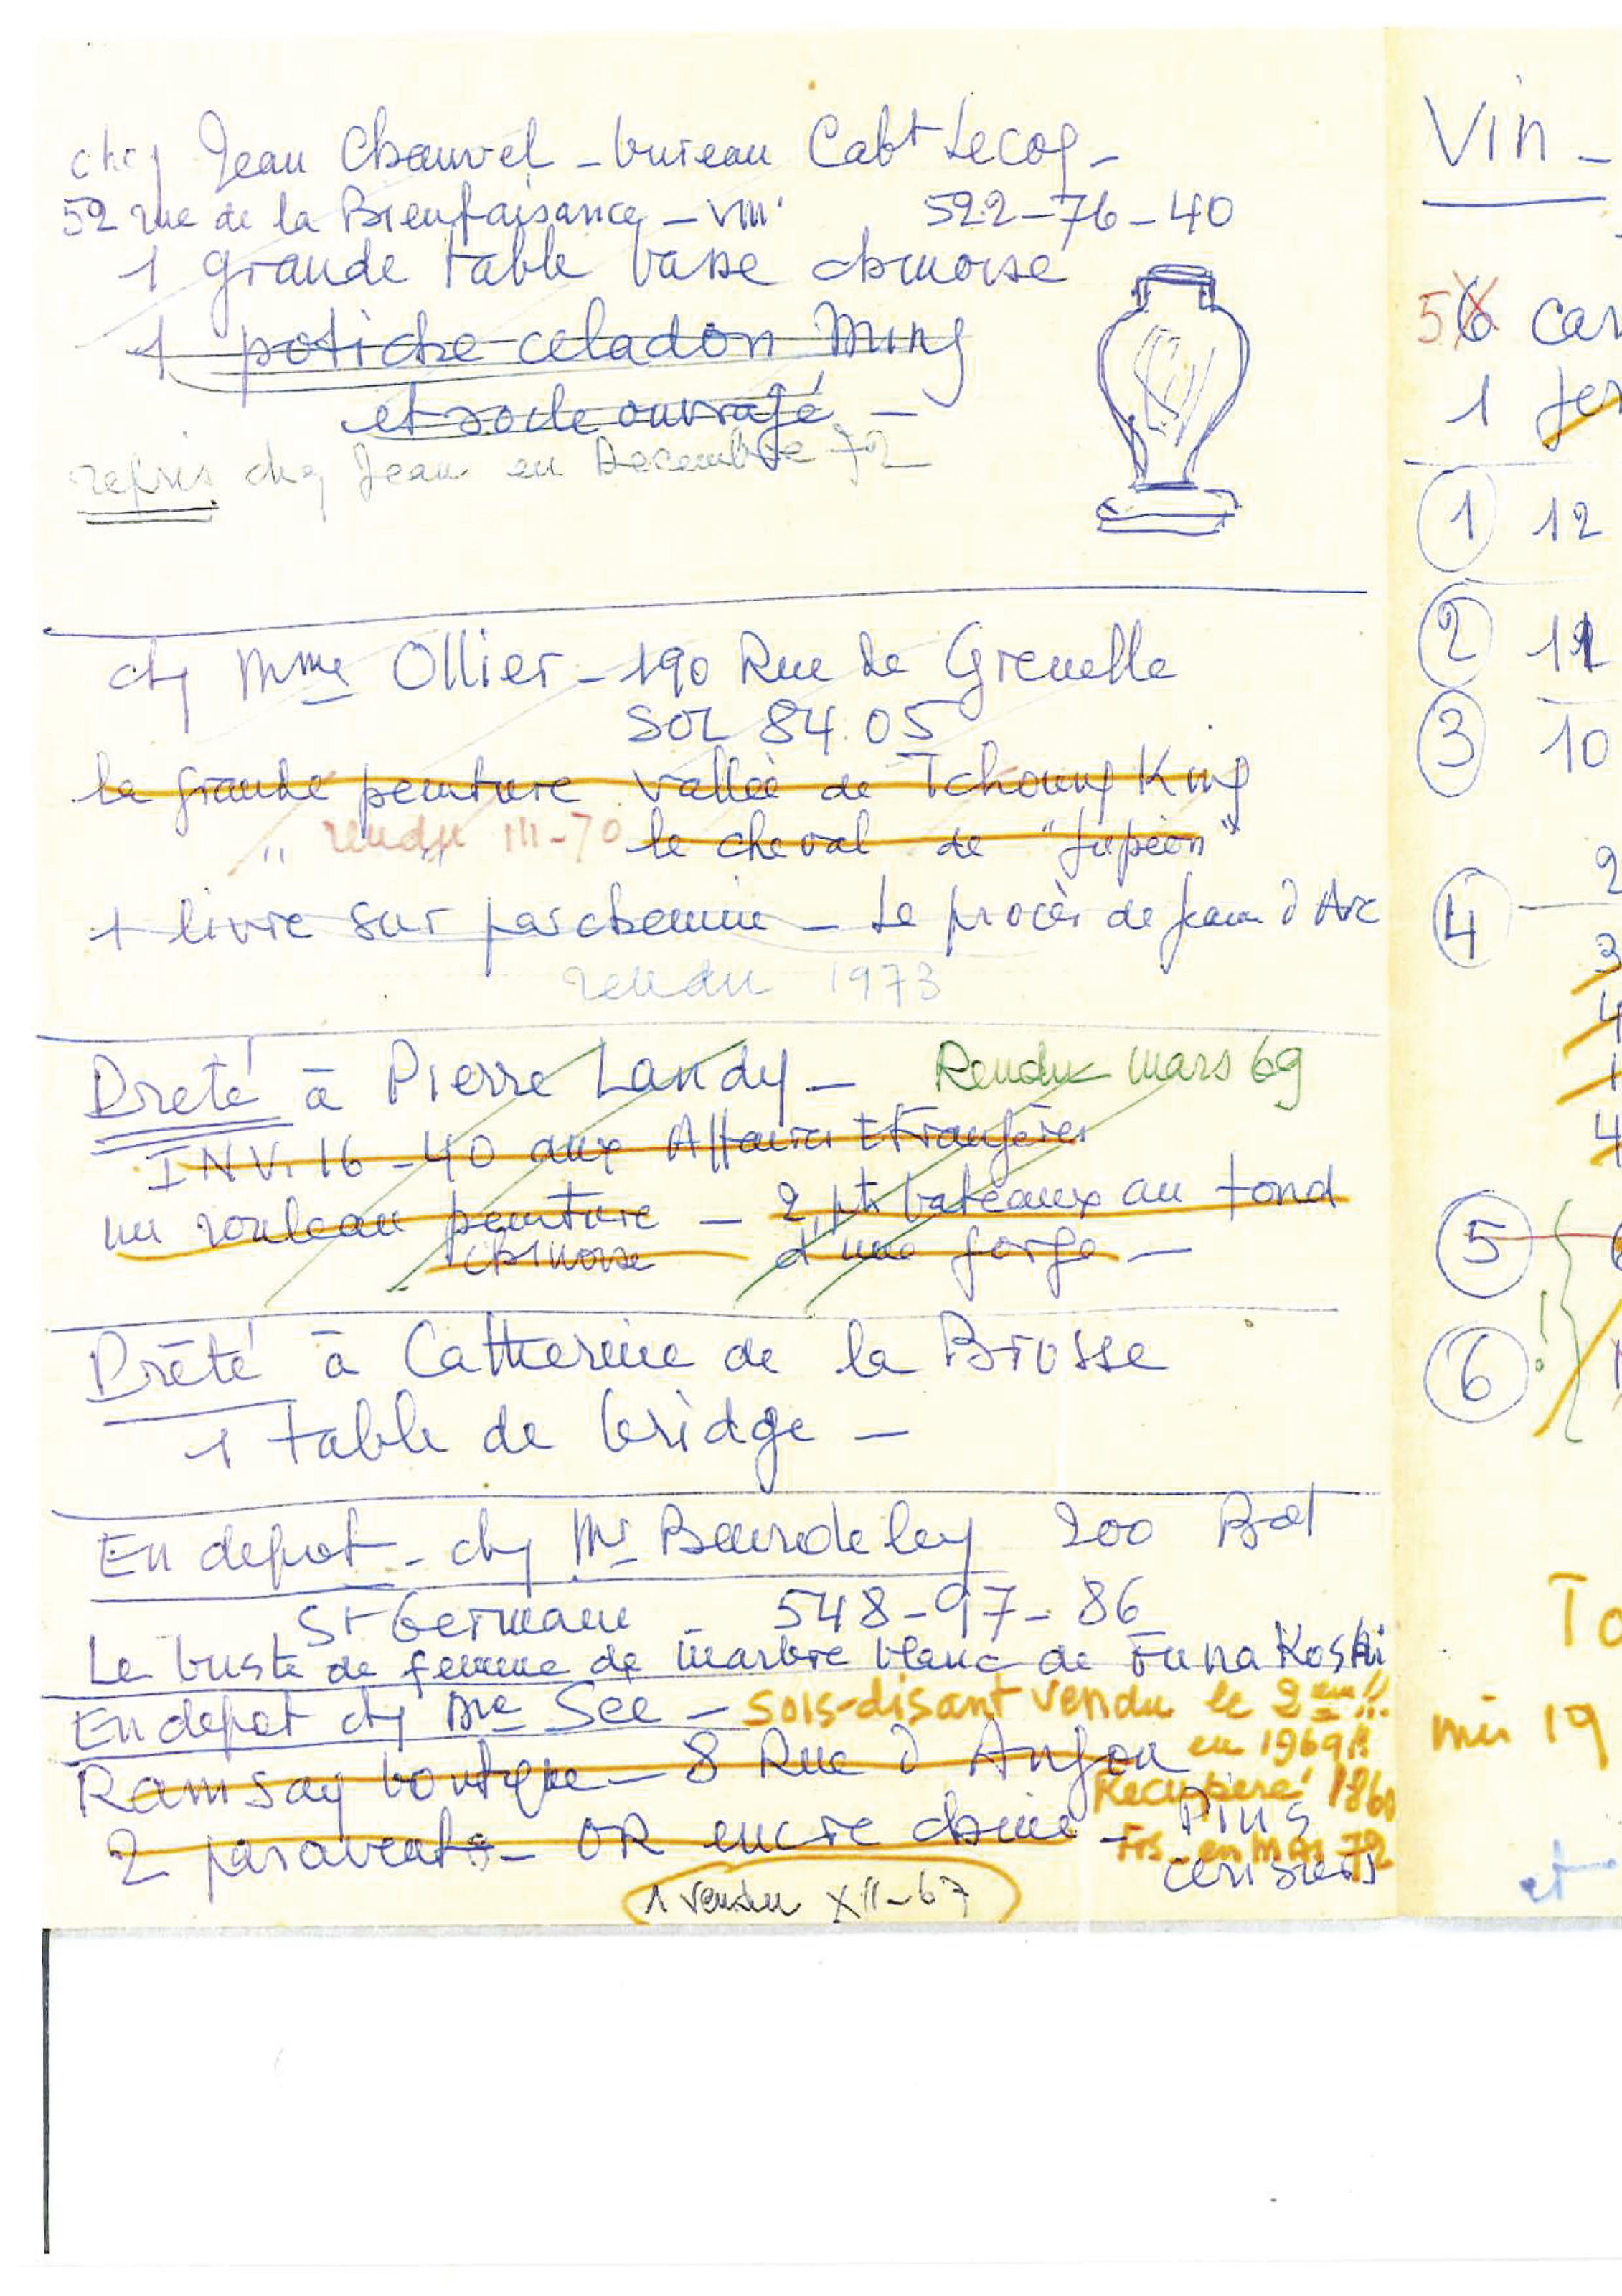 chez Jean Chauvel - bureau Cabt Lecoq -
52 rue de la Bienfaisance - VIII 522-76-40
1 grande table basse chinoise
1 potiche celadon Ming
et socle ouvragé -
repris chez Jean en Decembre 72
chez Mme Ollier - 190 Rue de Grenelle
SOL 84.05
la grande peinture vallée de Tchoung King
" rendu III-70 " le cheval de "Jupéon"
1 livre sur parchemin - Le procès de Jeanne d'Arc
rendu 1973
Preté à Pierre Landy - Rendu mars 69
INV. 16-40 aux Affaires Etrangères
un rouleau peinture - 2 pts bateaux au fond
chinoise d'une gorge -
Prêté à Catherine de la Brosse
1 table de bridge -
En depot - chez Mr Beurdeley 200 Bd
St Germain 548-97-86
Le buste de femme de marbre blanc de Funa Koshi
En depot chez Me See - sois-disant vendu le 2eme !!
en 1969 !!
Ramsay boutique - 8 Rue d'Anjou
Recupéré
2 paravents - OR encre chine - Pins
en 72
cerisiers
1 vendu XII-67
Vin -
5 6
1
① 12
② 11
③ 10
④ 2
3
4
1
4
⑤
⑥
19
et